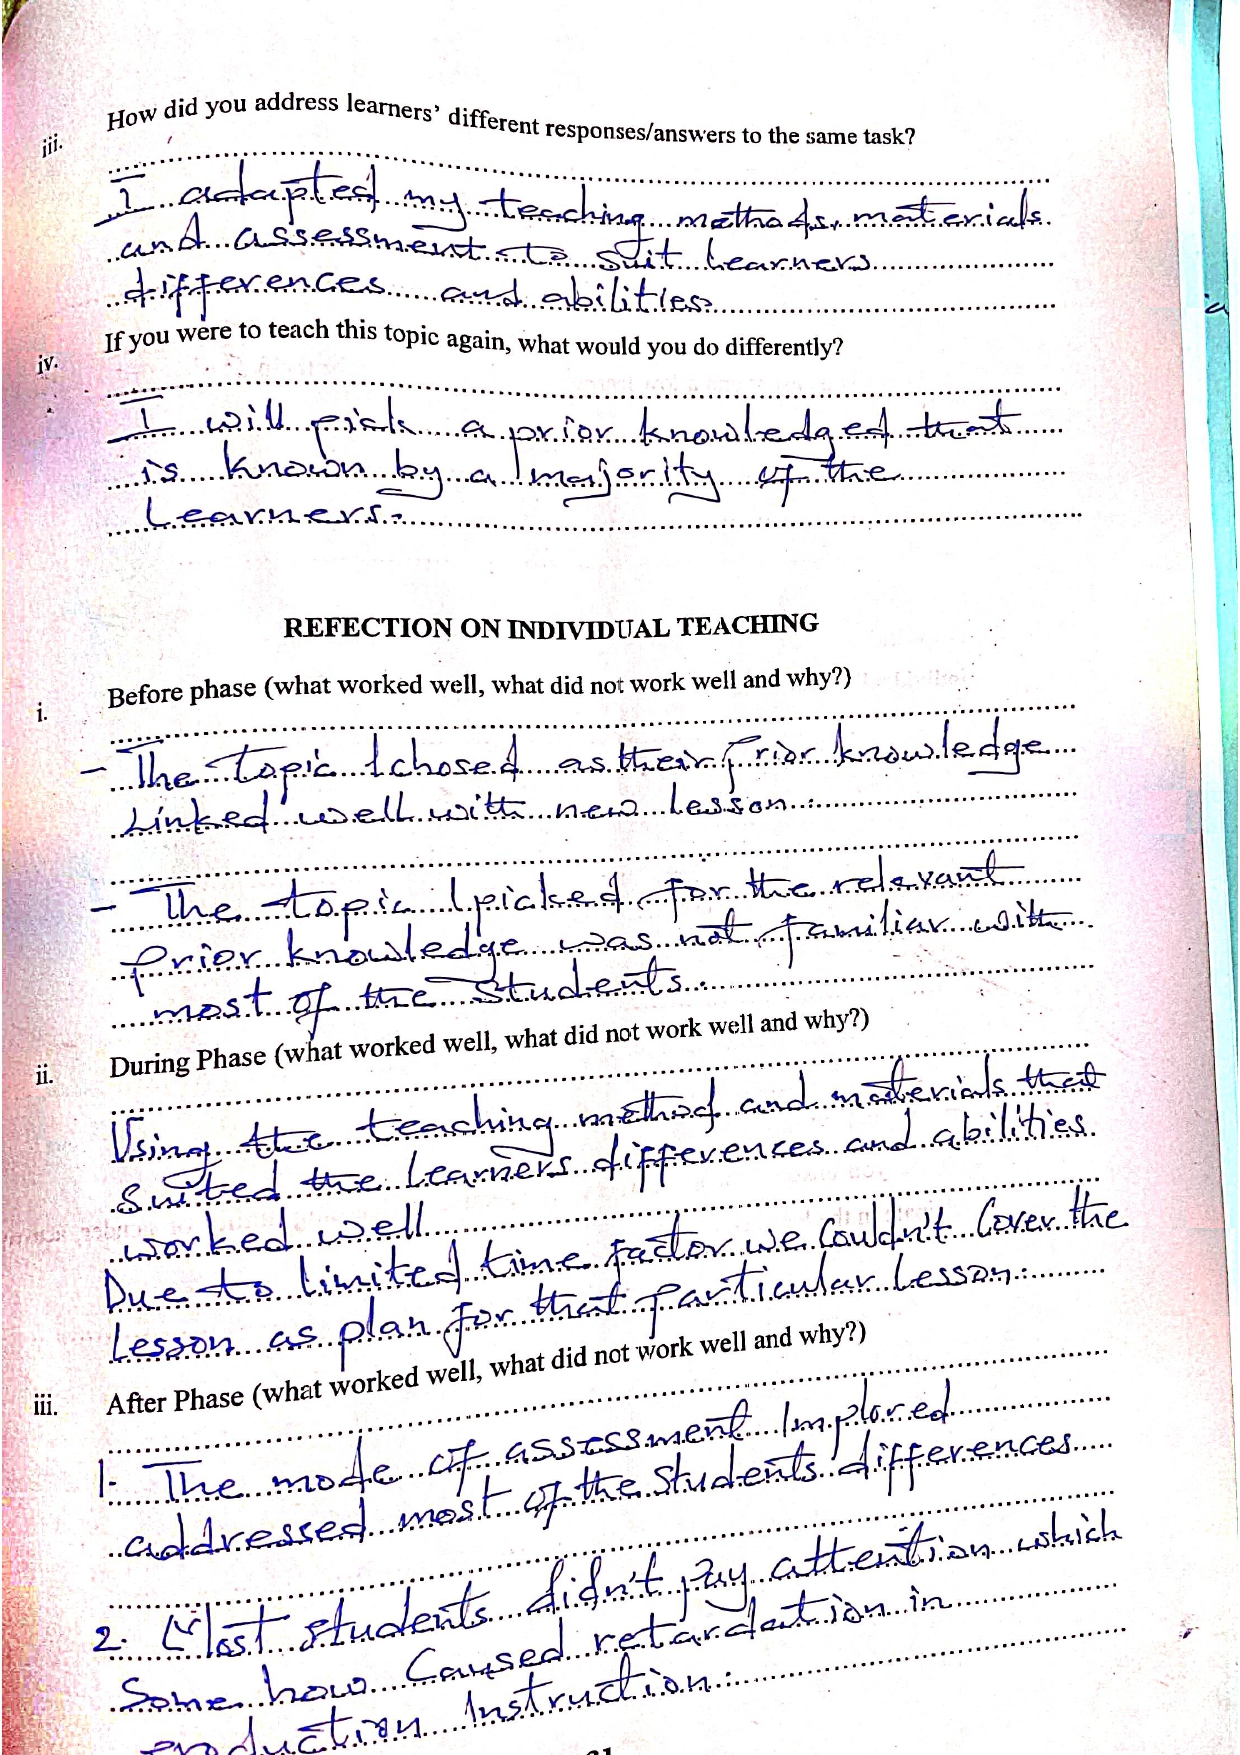 iii. How did you address learners' different responses/answers to the same task?
I adapted my teaching methods, materials
and assessment to suit learners
differences and abilities
iv. If you were to teach this topic again, what would you do differently?
I will pick a prior knowledged that
is known by a majority of the
Learners.
REFECTION ON INDIVIDUAL TEACHING
i. Before phase (what worked well, what did not work well and why?)
- The topic I chosed as their prior knowledge
Linked well with new lesson.
- The topic I picked for the relevant
prior knowledge was not familiar with
most of the students.
ii. During Phase (what did worked well, what did not work well and why?)
Using the teaching method and materials that
suited the learners differences and abilities
worked well
Due to limited time factor we couldn't cover the
lesson as plan for that particular lesson.
iii. After Phase (what worked well, what did not work well and why?)
1. The mode of assessment Implored
addressed most of the students differences
2. Most students didn't pay attention which
Some how caused retardation in
Instruction.